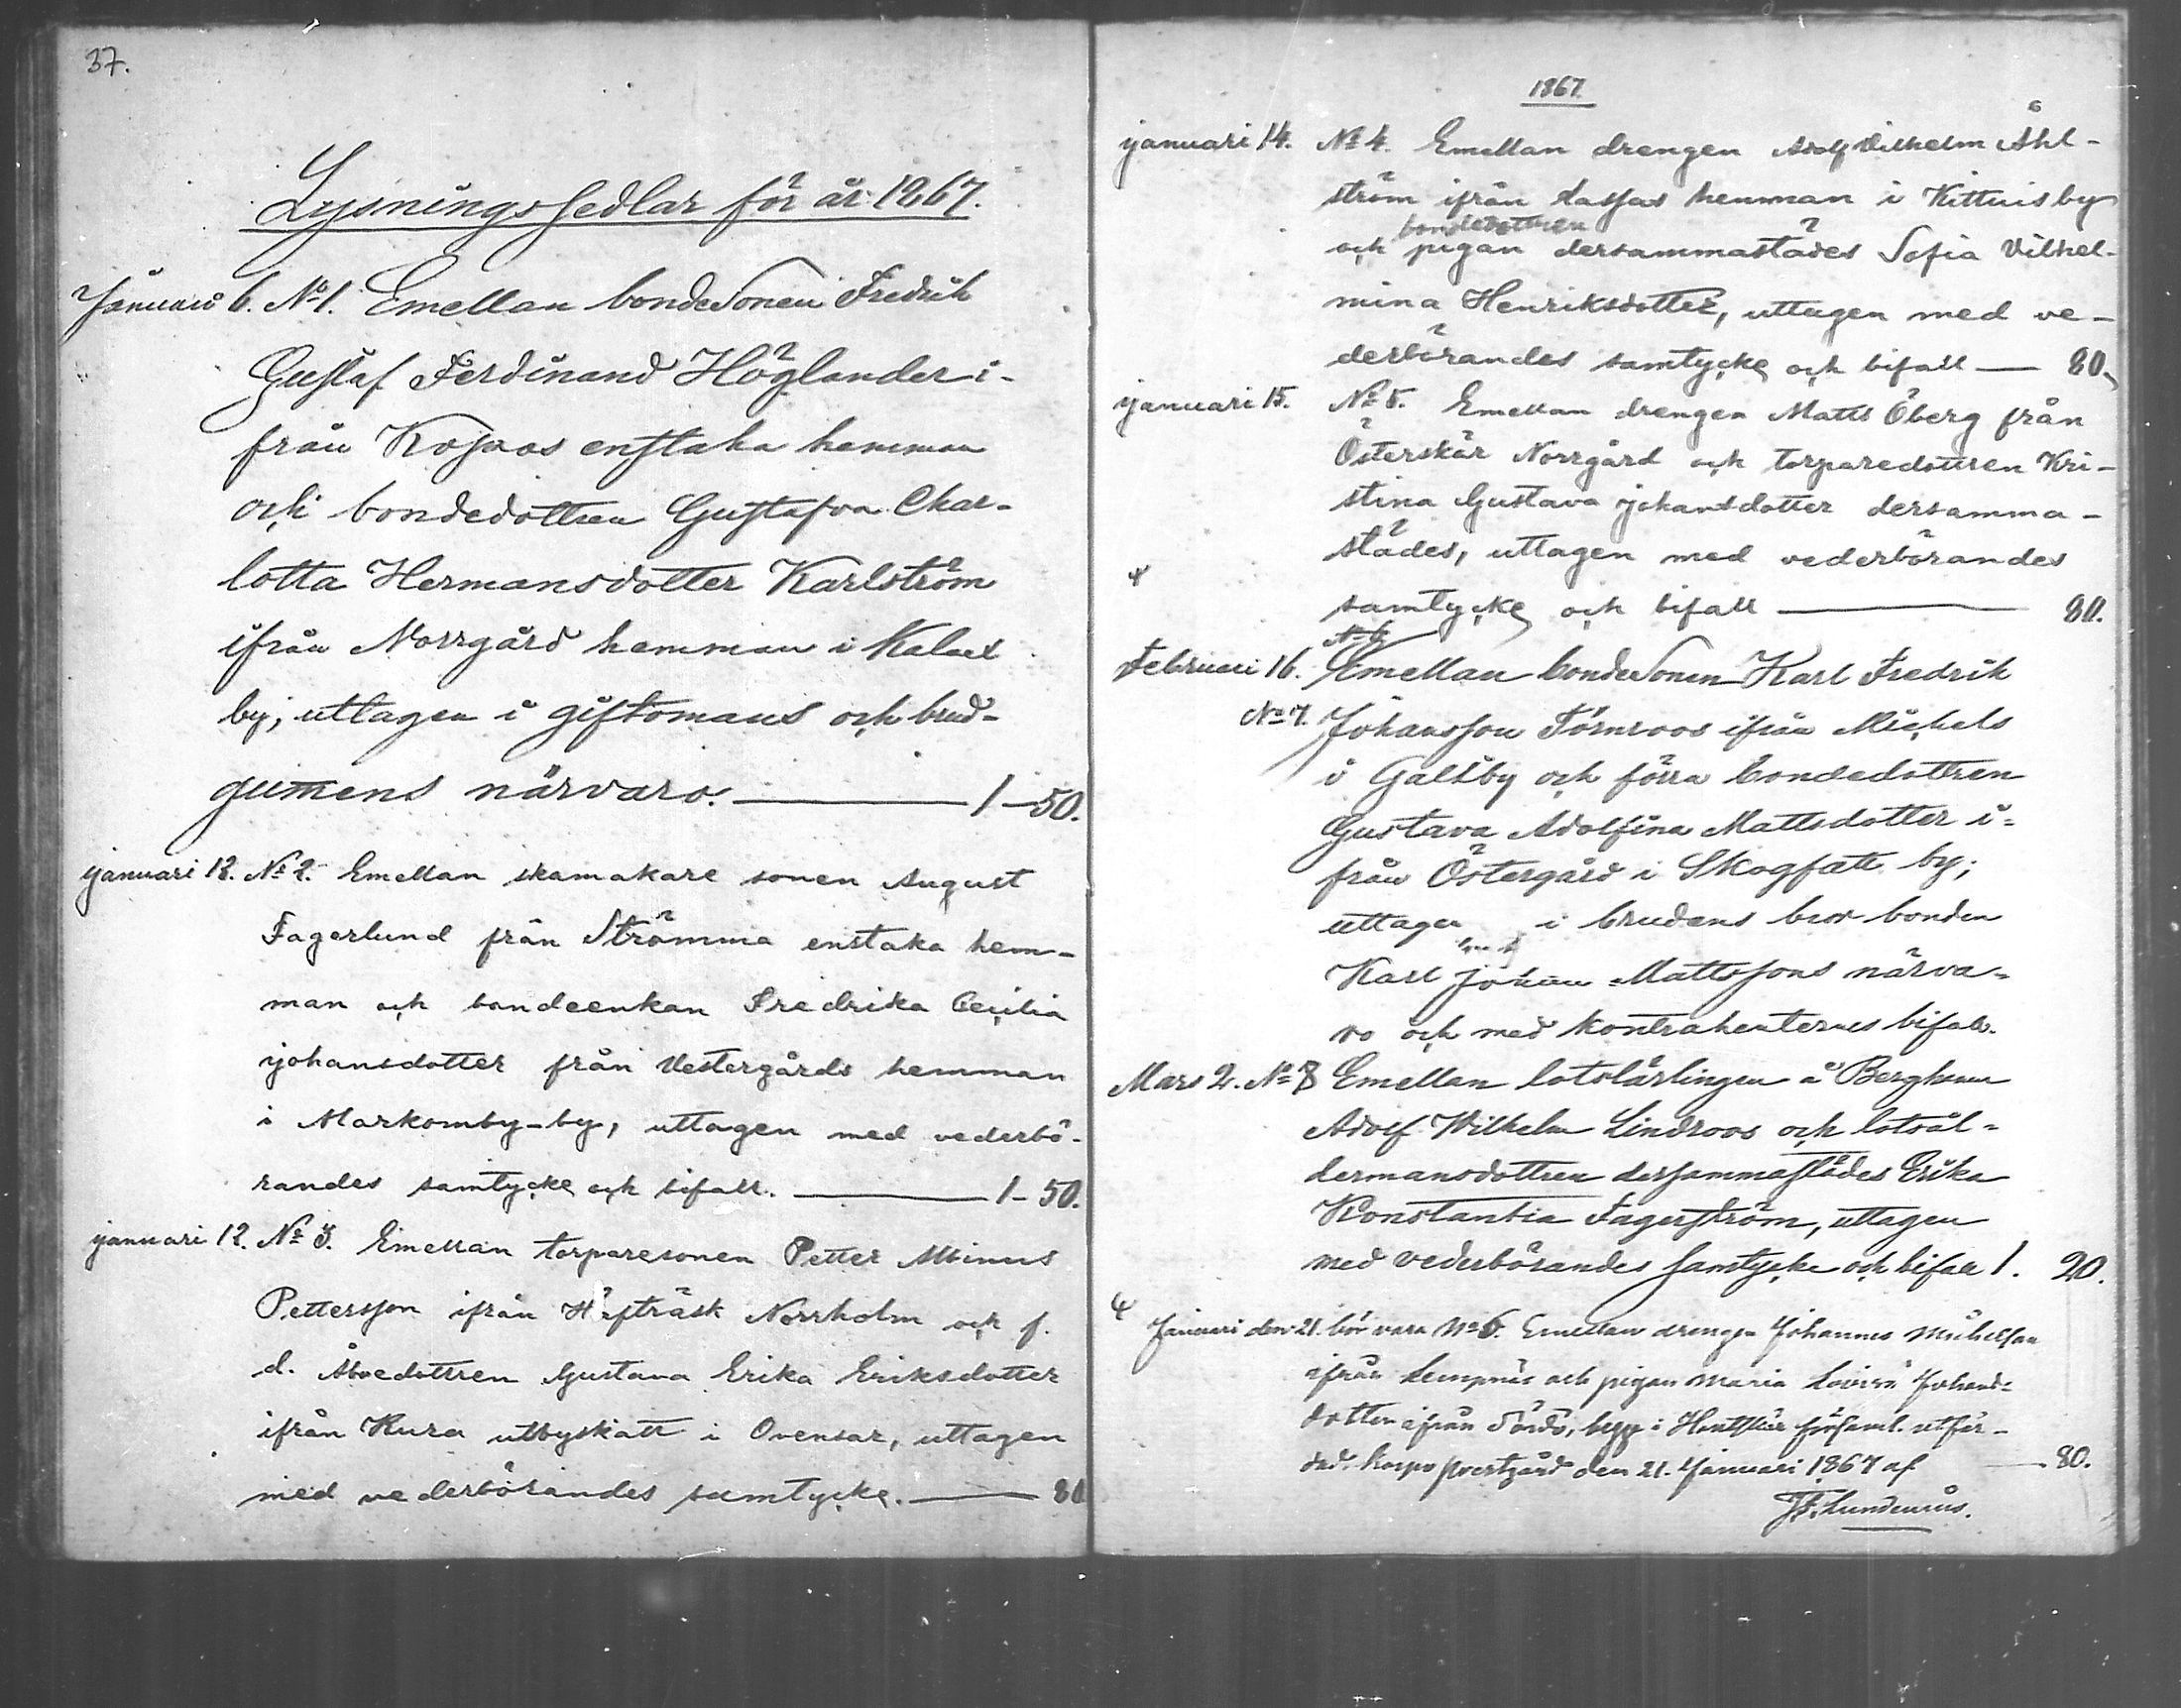 37.
Lysningssedlar för år 1867.
Januari 6. No 1. Emellan bondesonen Fredrik
Gustaf Ferdinand Höglander i-
från Kopos enstaka hemman
och bondedottren Gustafva Char-
lotta Hermansdotter Karlström
ifrån Norrgård hemman i Kalax
by, uttagen i giftomans och brud-
gumens närvaro. — 1–50.
januari 12. No 2. Emellan skomakare sonen August
Fagerlund från Strömma enstaka hem-
man och bondeenkan Fredrika Cecilia
johansdotter från Vestergårds hemman
i Markomby-by, uttagen med vederbö-
randes samtycke och bifall. — 1–50.
januari 12. No 3. Emellan torparesonen Petter Albinus
Pettersson ifrån Norrholm och f.
d. Åboedottren Gustava Erika Eriksdotter
ifrån Kura utbyskatt i Ovensar, uttagen
med vederbörandes samtycke. — 80
1867.
januari 14. No 4. Emellan drengen Adolf Vilhelm Åhl-
ström ifrån hemman i Kittuis by
bondedottren
och pigan dersammastädes Sofia Vilhel-
mina Henriksdotter, uttagen med ve-
derbörandes samtycke och bifall — 80.
januari 15. No 5. Emellan drengen Matts Öberg från
Österskär Norrgård och torparedottren Kri-
stina Gustava johansdotter dersamma-
städes, uttagen med vederbörandes
samtycke och bifall — 80.
No 6
Februari 16. Emellan bondesonen Karl Fredrik
No 7. Johansson Törnroos ifrån Michels
i Galtby och förra bondedottren
Gustava Adolfina Mattsdotter i-
från Östergård i Skogfatt by;
uttagen i brudens bror bonden
Karl Johan Mattssons närva-
ro och med kontrahenternes bifall.
Mars 2. No 8 Emellan lotslärlingen å Berghamn
Adolf Wilhelm Lindroos och lotsål-
dermansdottren dersammastädes Erika
Konstantia Fagerström, uttagen
med vederbörandes samtycke och bifall 1. 20.
Januari den 21. bör vara No 6. Emellan drengen Johannes Michelsson
ifrån Lempnäs och pigan Maria Lovisa Johans-
dotter ifrån i Houtskär församl. utfär-
dad. Korpo prestgård den 21. Januari 1867 af — 80.
J.F. Lundenius.